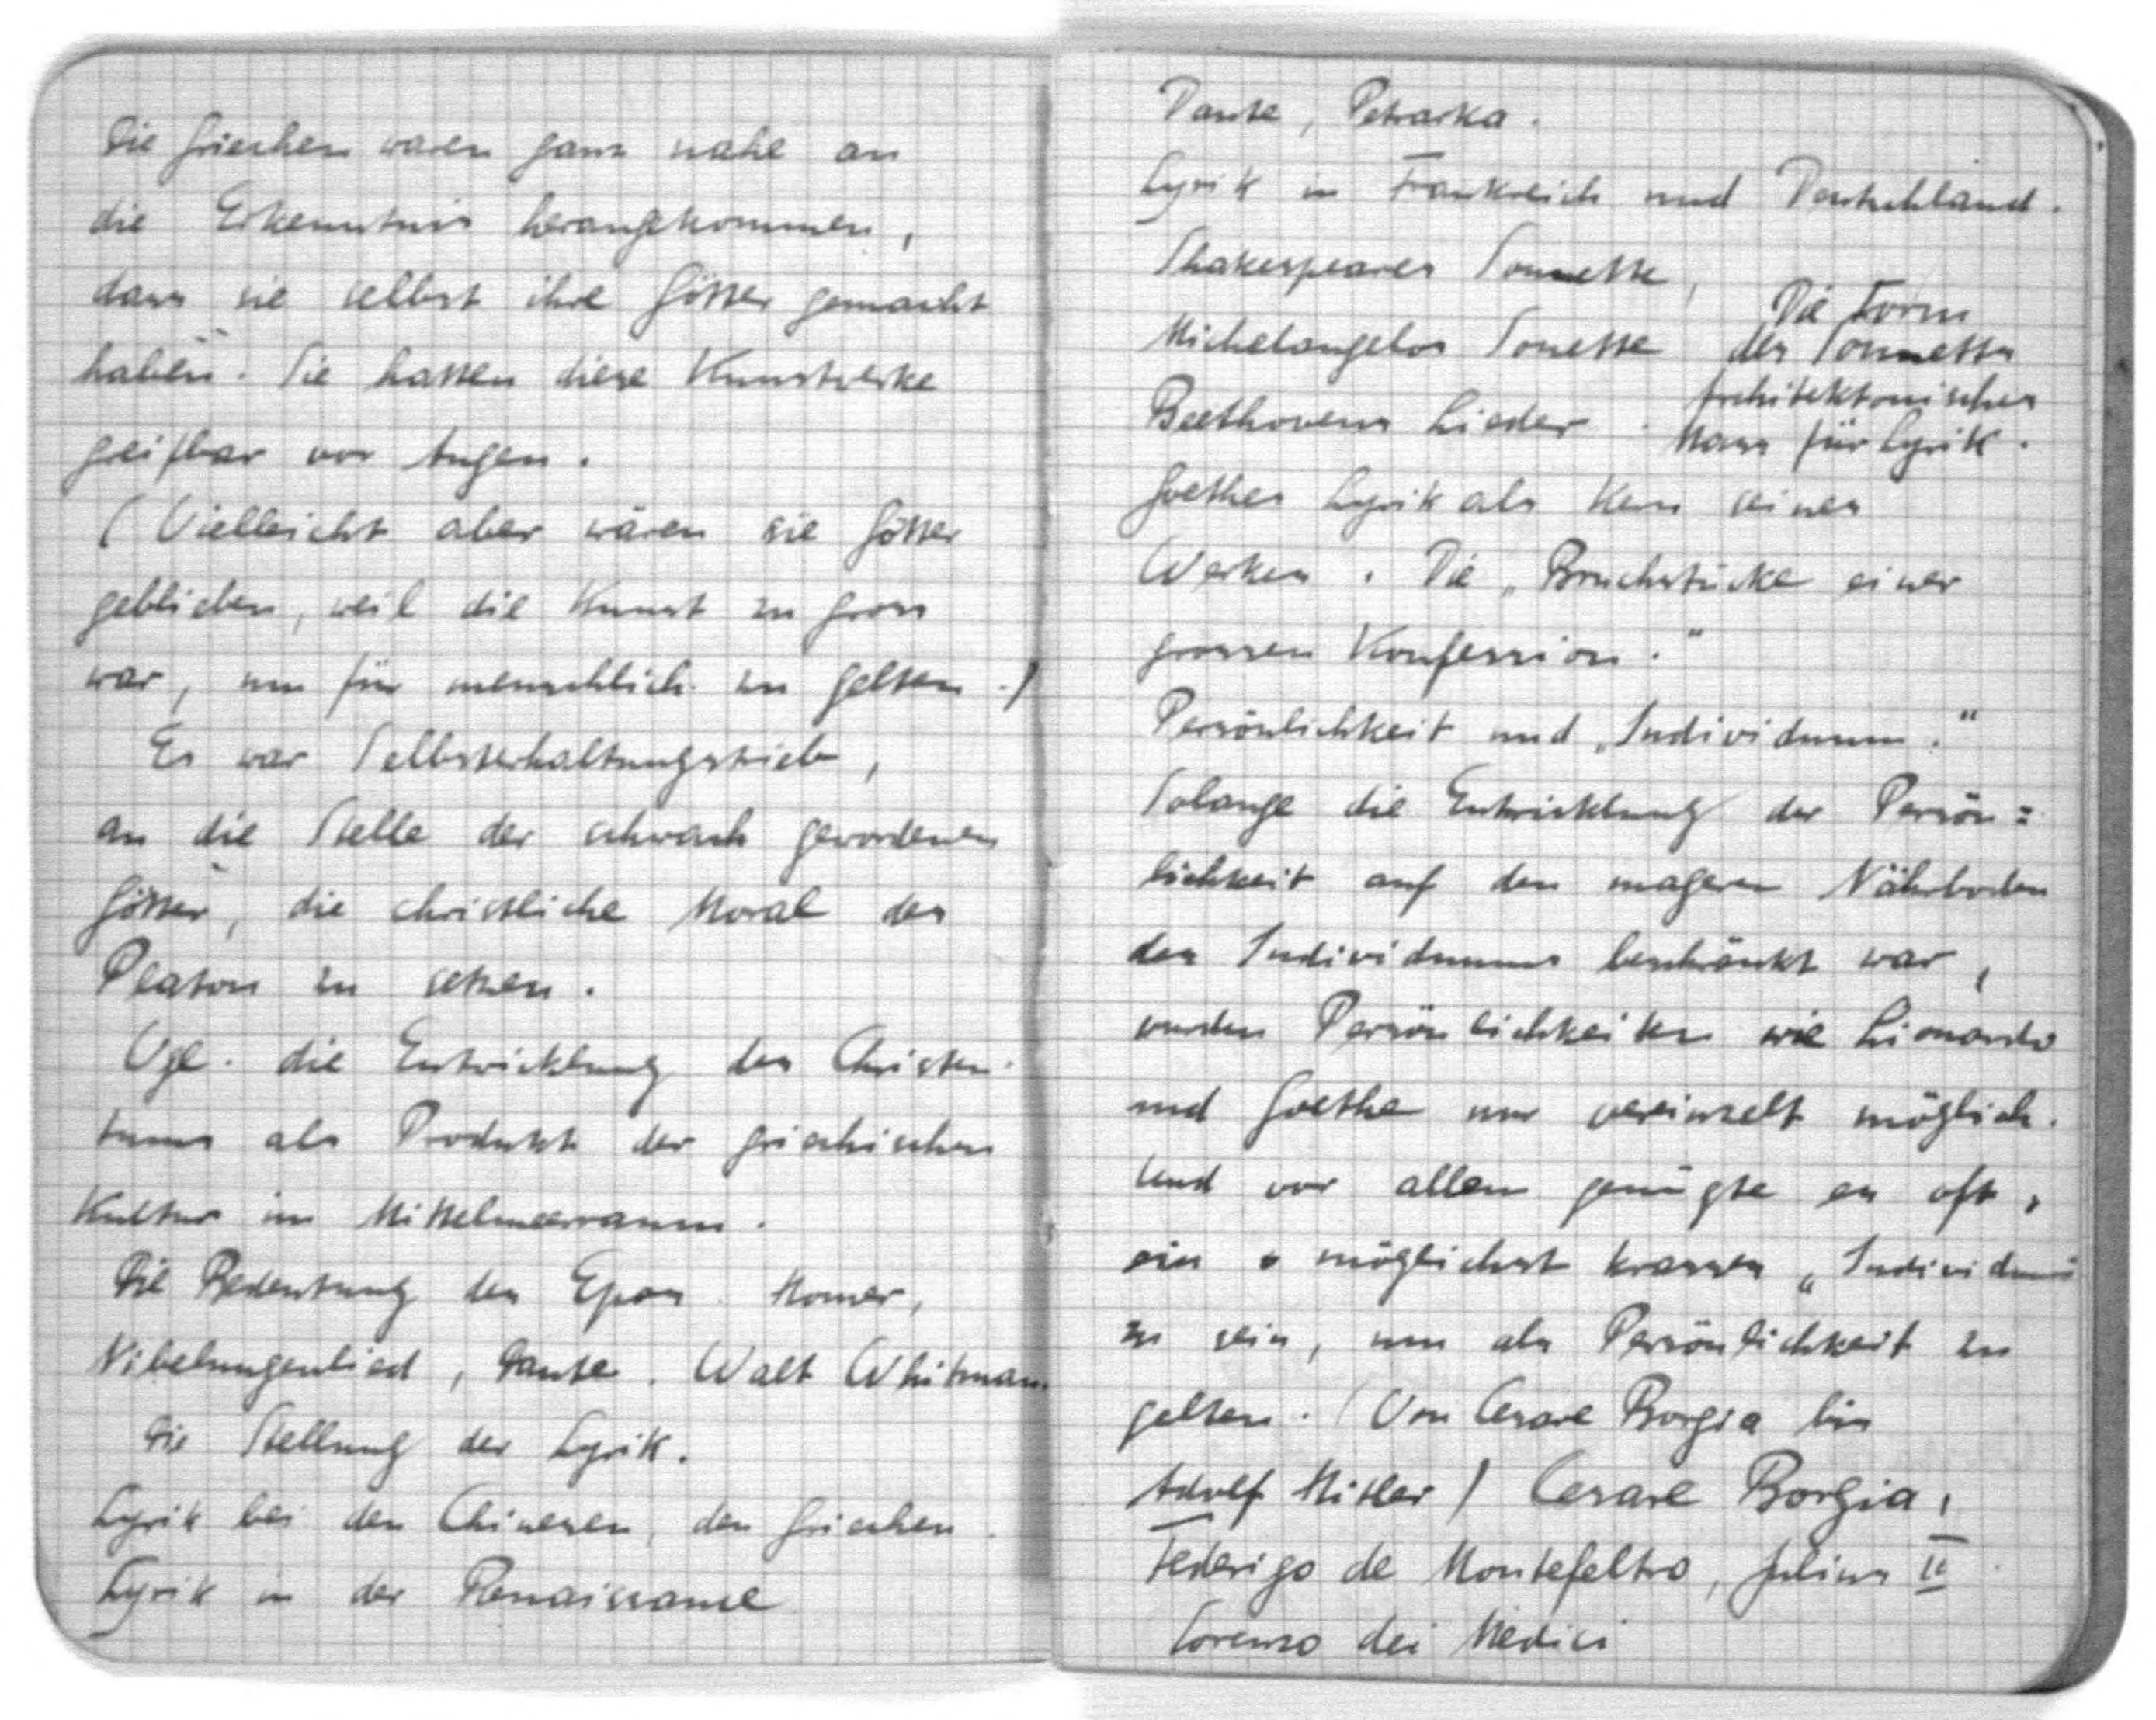 Die Griechen waren ganz nahe an
die Erkenntnis herangekommen,
dass sie selbst ihre Götter gemacht
haben. Sie hatten diese Kunstwerke
greifbar vor Augen.
(Vielleicht aber wären sie Götter
geblieben, weil die Kunst zu gross
war, um für menschlich zu gelten.)
Es war Selbsterhaltungstrieb,
an die Stelle der schwach gewordenen
Götter, die christliche Moral des
Platon zu setzen.
Vgl. die Entwicklung des Christen-
tums als Produkt der griechischen
Kultur im Mittelmeerraum.
Die Bedeutung des Epos. Homer,
Nibelungenlied, Dante. Walt Whitman.
Die Stellung der Lyrik.
Lyrik bei den Chinesen, den Griechen.
Lyrik in der Renaissance
Dante, Petrarka.
Lyrik in Frankreich und Deutschland.
Shakespeares Sonnette,
Michelangelos Sonette
Beethovens Lieder.
Die Form
des Sonnetts
Architektonisches
Mass für Lyrik.
Goethes Lyrik als Kern seines
Werkes. Die „Bruchstücke einer
grossen Konfession."
Persönlichkeit und „Individuum."
Solange die Entwicklung der Persön=
lichkeit auf den mageren Nährboden
des Individuums beschränkt war,
wurden Persönlichkeiten wie Lionardo
und Goethe nur vereinzelt möglich.
Und vor allem genügte es oft,
ein möglichst krasses „Individuum
zu sein, um als Persönlichkeit zu
gelten. (Von Cesare Borgia bis
Adolf Hitler) Cesare Borgia,
Federigo de Montefeltro, Julius II
Lorenzo dei Medici